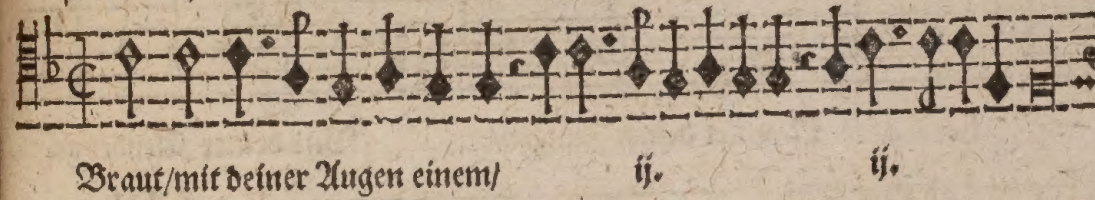 Braut/mit deiner Augen einem/ ij. ij.